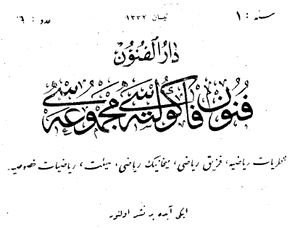 سنه : ١ نیسان ١٣٣٢ عدد : ٦
دار الفنون
فنون فاکولته سی مجموعه سی
نظریات ریاضیه، فزیق ریاضی، میخانیك ریاضی، هیئت، ریاضیات خصوصیه.
ایکی آیده بر نشر اولنور